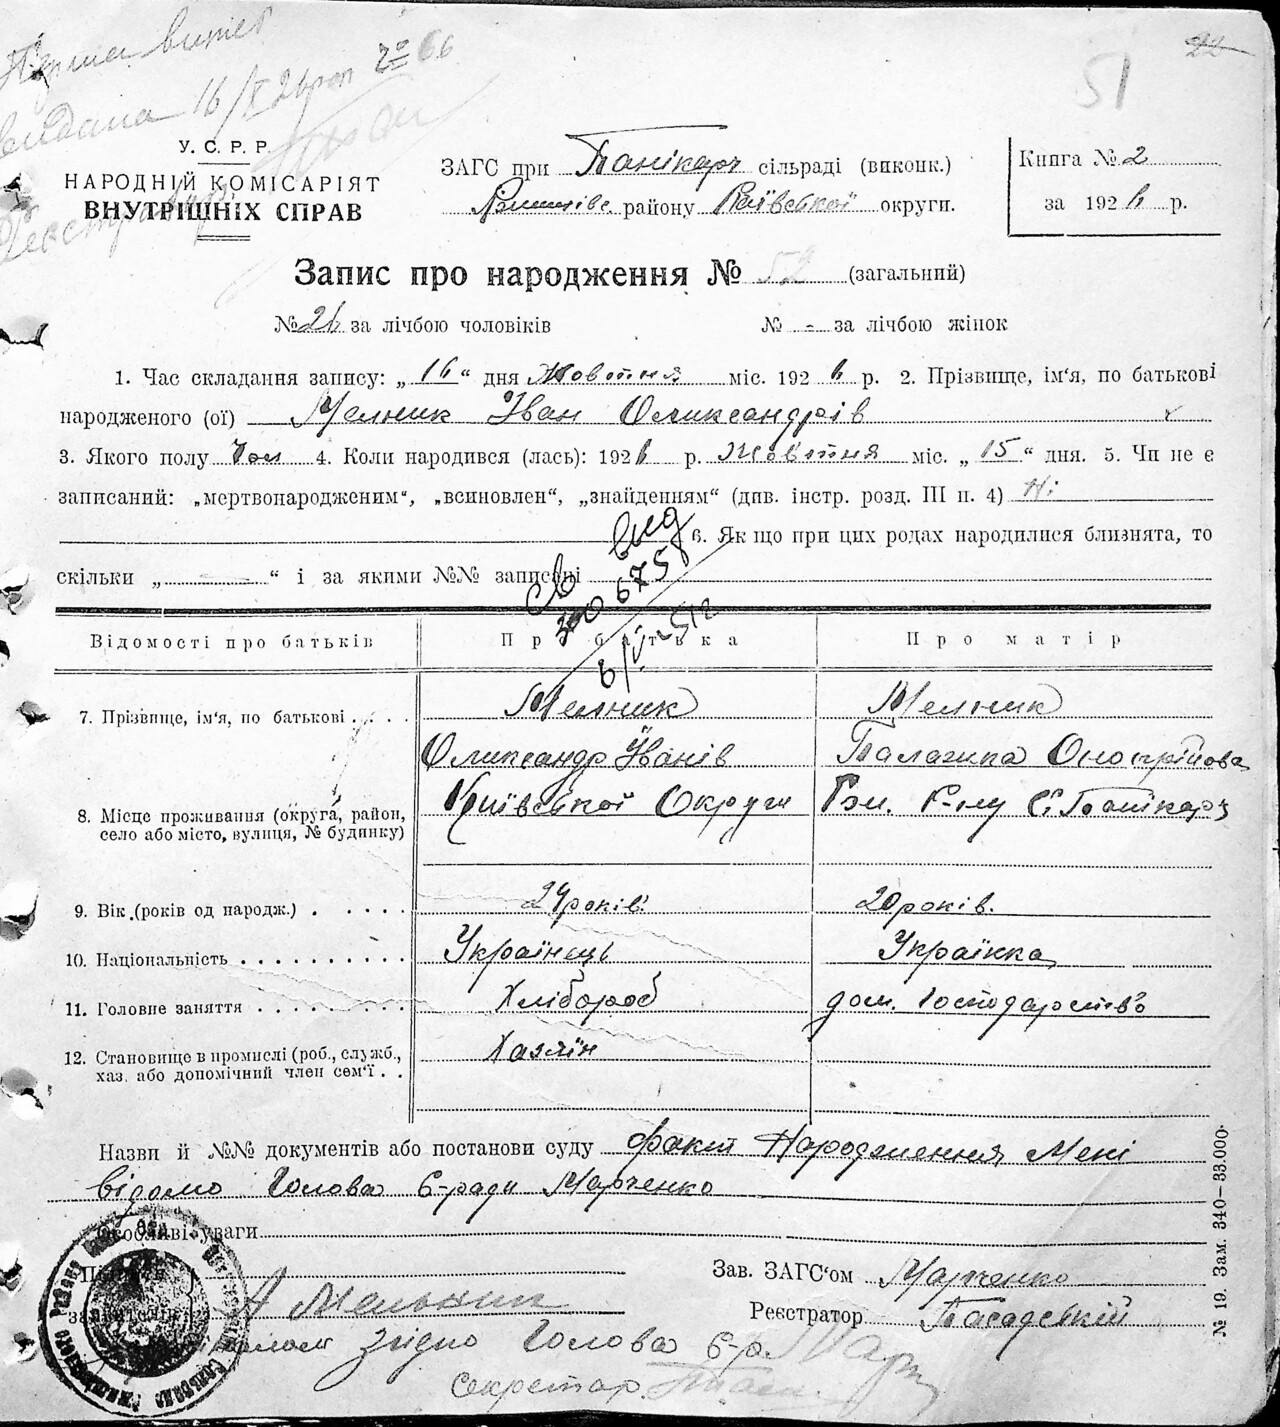 Перша витяг
видана 16/X 26 р. № 66
51
22
У. С. Р. Р.
НАРОДНІЙ КОМІСАРІЯТ
ВНУТРІШНІХ СПРАВ
ЗАГС при Панікарч сільраді (виконк.)
району Київської округи.
Книга № 2
за 1926 р.
Запис про народження № 52 (загальний)
№ 26 за лічбою чоловіків № - за лічбою жінок
1. Час складання запису: „16“ дня Жовтня міс. 1926 р. 2. Прізвище, ім'я, по батькові
народженого (ої) Мелник Іван Олександрів
3. Якого полу Чол 4. Коли народився (лась): 1926 р. Жовтня міс. „15“ дня. 5. Чи не є
записаний: „мертвонародженим“, „всиновлен“, „знайденням“ (див. інстр. розд. III п. 4) Ні
6. Як що при цих родах народилися близнята, то
скільки „ “ і за якими №№ записані
св вид
675
Відомості про батьків Про батька Про матір
7. Прізвище, ім'я, по батькові Мелник Мелник
Олександр Іванів Палажка Оноприйова
8. Місце проживання (округа, район, село або місто, вулиця, № будинку) Київської Округи
9. Вік (років од народж.) 24 років. 20 років.
10. Національність Українець Українка
11. Головне заняття Хлібороб дом. Господарство
12. Становище в промислі (роб., служб., хаз. або допомічний член сем'ї Хазяїн
Назви й №№ документів або постанови суду факт Народження Мені
відомо Голова С-ради Марченко
Особливі уваги
Зав. ЗАГС'ом Марченко
А Мельник
Реєстратор Пасадський
згідно Голова С-р.
Секретар
№ 19. Зам. 340—33.000.